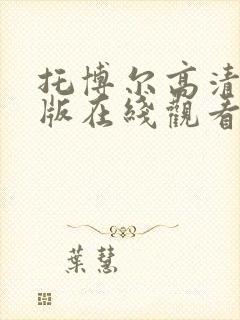 托博尔高清
版在线觀看
葉慧